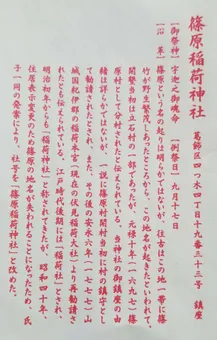 篠原稲荷神社
葛飾区四つ木四丁目十九番三三号 鎮座
【御祭神】宇迦之御魂命 【例祭日】九月十七日
【沿革】篠原という名の起りは明らかではないが、往古はこの地一帯に篠
竹が野生繁茂しあったところから、この地名が起きたといわれて、
開墾当初は立石村の一部であったが、元禄十年(一六九七)篠
原村として分村されたと伝えられている。当神社の御鎮座の由
緒は詳らかではないが、一説に篠原村開村当初に村の鎮守とし
て勧請されたとされ、また、その後の安永六年(一七七七)山
城国紀伊郡の稲荷本宮(現在の伏見稲荷大社)より再勧請さ
れたとも伝えられている。江戸時代後期には「稲荷社」とされ、
明治初年からも「稲荷神社」と称されてきたが、昭和四十年、
住居表示変更のため篠原の地名が失われることになったため、氏
子一同の発案により、社号を「篠原稲荷神社」と改めた。